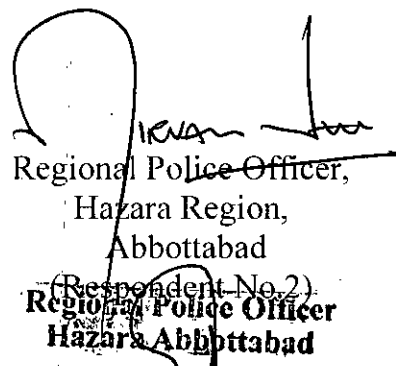 Regional Police Officer,
Hazara Region,
Abbottabad
(Respondent No.2)
Regional Police Officer
Hazara Abbottabad